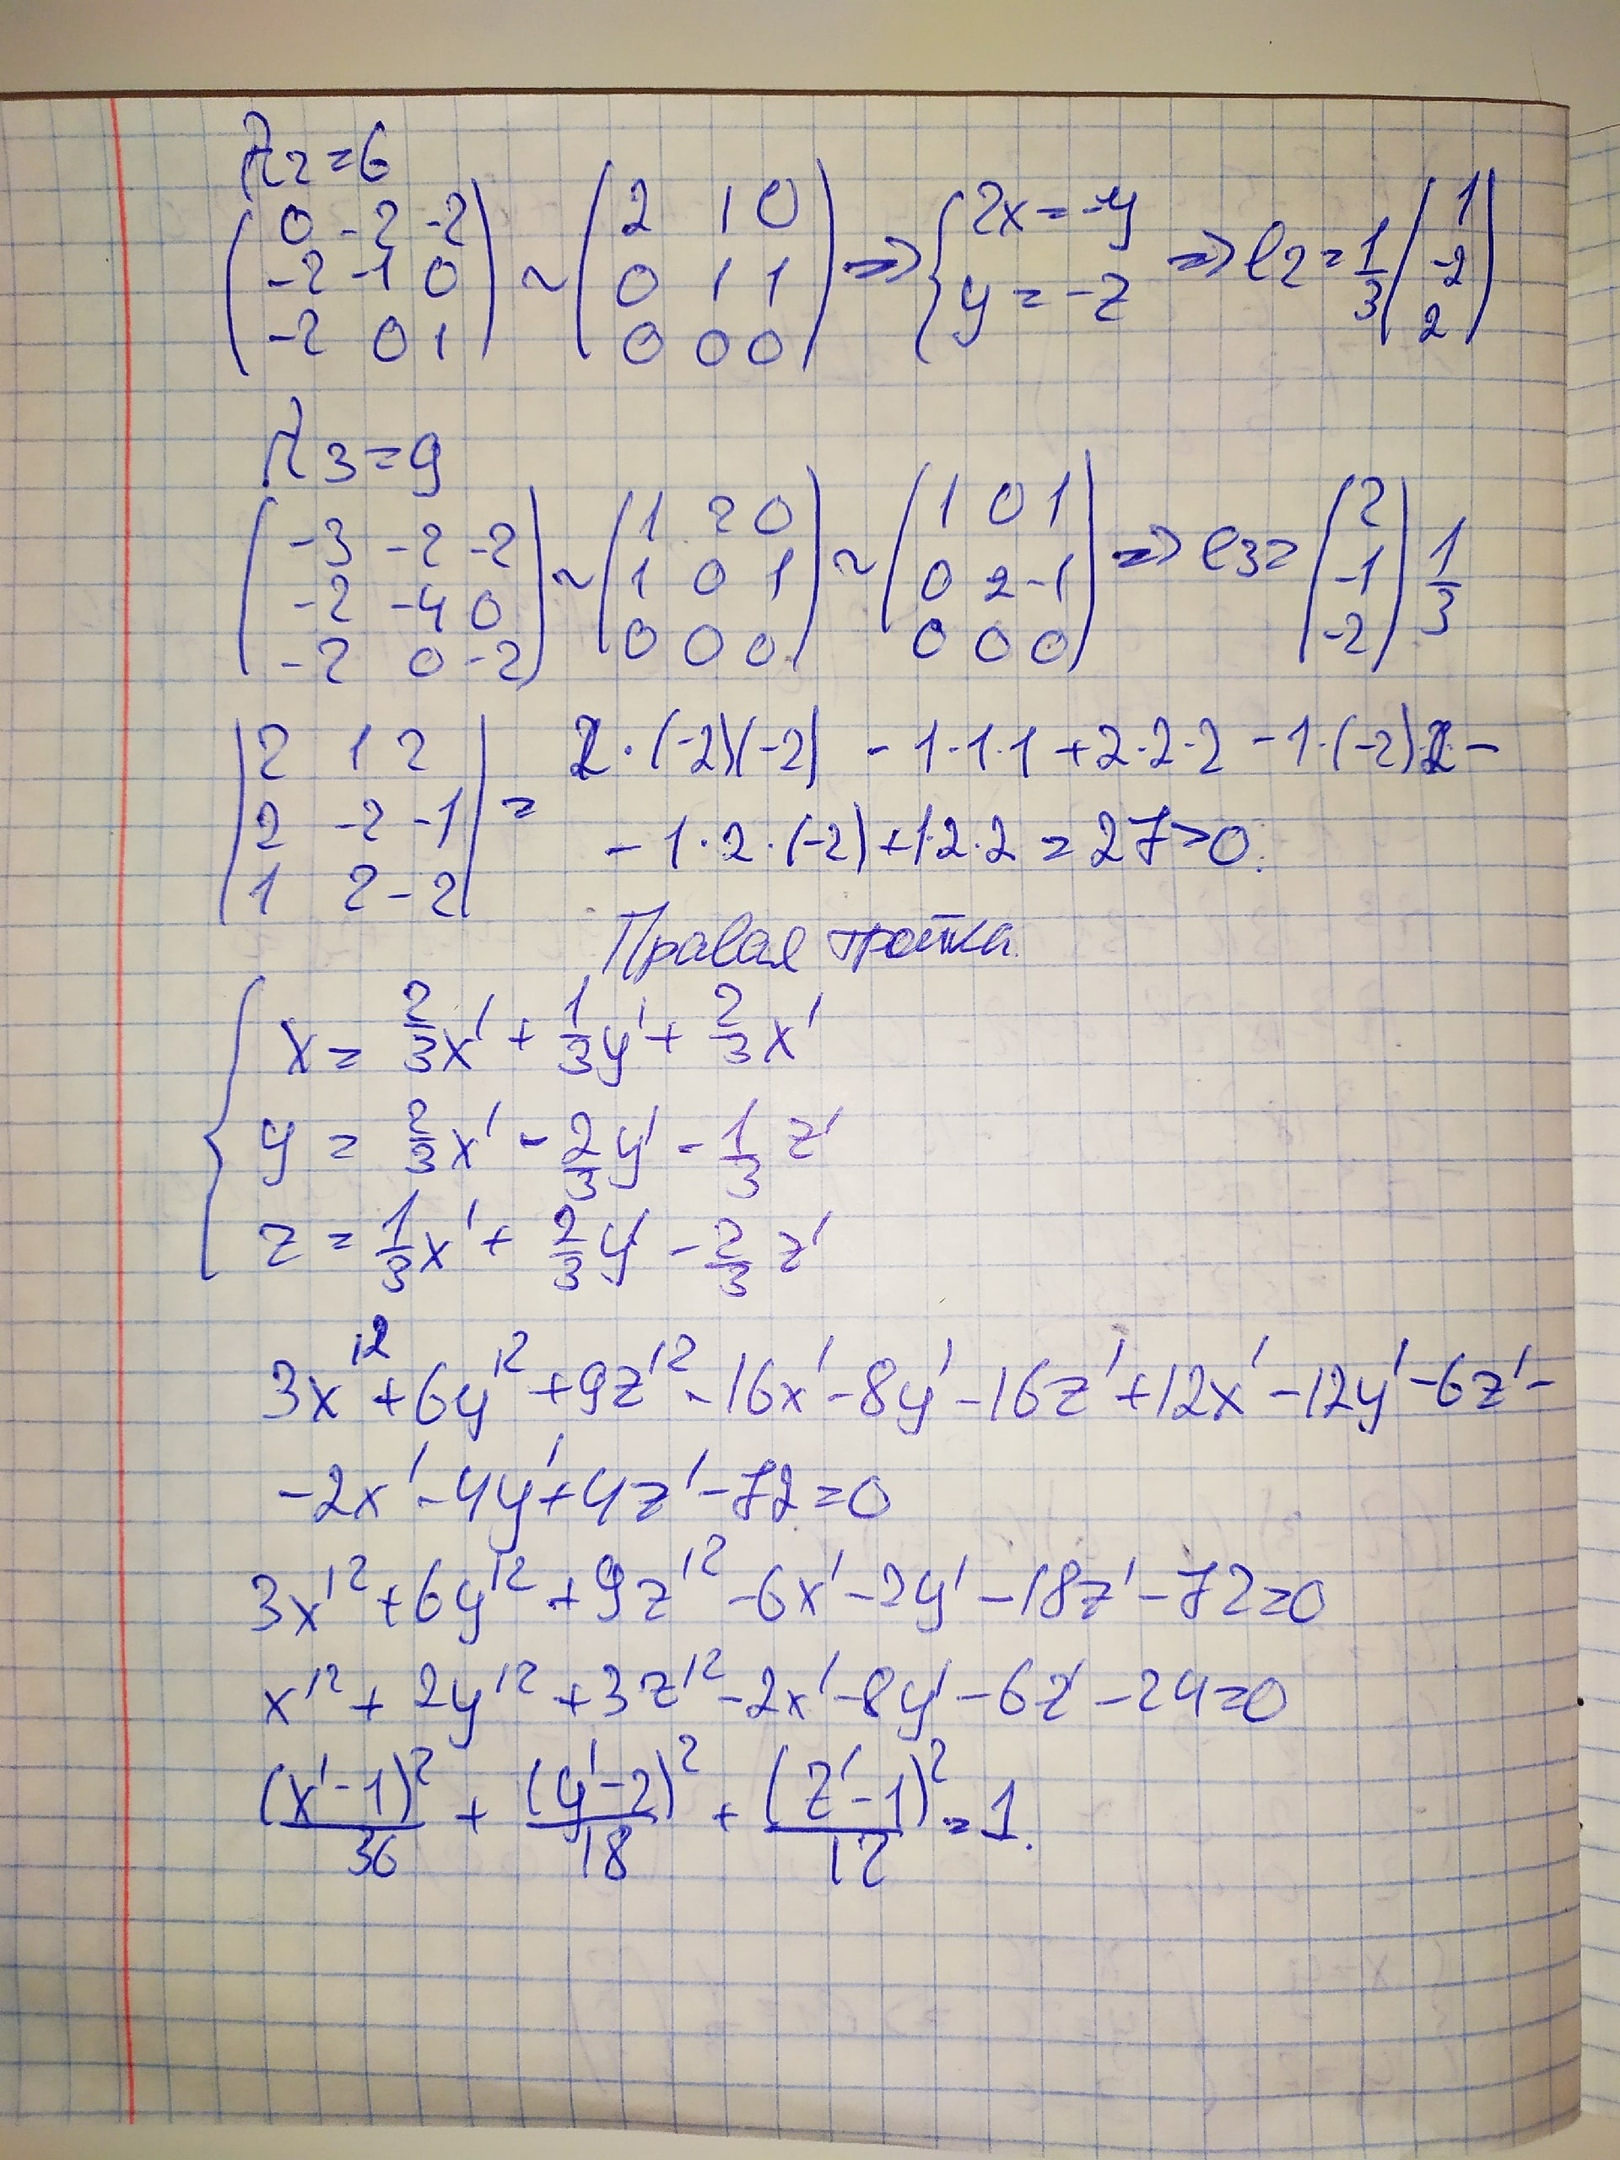 λ₂ = 6
(0 -2 -2; -2 -1 0; -2 0 1) ~ (2 1 0; 0 1 1; 0 0 0) => {2x = -y; y = -z => e₂ = 1/3 (1; -2; 2)
λ₃ = 9
(-3 -2 -2; -2 -4 0; -2 0 -2) ~ (1 2 0; 1 0 1; 0 0 0) ~ (1 0 1; 0 2 -1; 0 0 0) => e₃ = (2; -1; -2) 1/3
|2 1 2; 2 -2 -1; 1 2 -2| = 2·(-2)(-2) - 1·1·1 + 2·2·2 - 1·(-2)·2 -
- 1·2·(-2) + 1·2·2 = 27 > 0.
Правая тройка.
x = 2/3 x' + 1/3 y' + 2/3 x'
y = 2/3 x' - 2/3 y' - 1/3 z'
z = 1/3 x' + 2/3 y' - 2/3 z'
3x'² + 6y'² + 9z'² - 16x' - 8y' - 16z' + 12x' - 12y' - 6z' -
- 2x' - 4y' + 4z' - 72 = 0
3x'² + 6y'² + 9z'² - 6x' - 2y' - 18z' - 72 = 0
x'² + 2y'² + 3z'² - 2x' - 8y' - 6z' - 24 = 0
(x'-1)²/36 + (y'-2)²/18 + (z'-1)²/12 = 1.